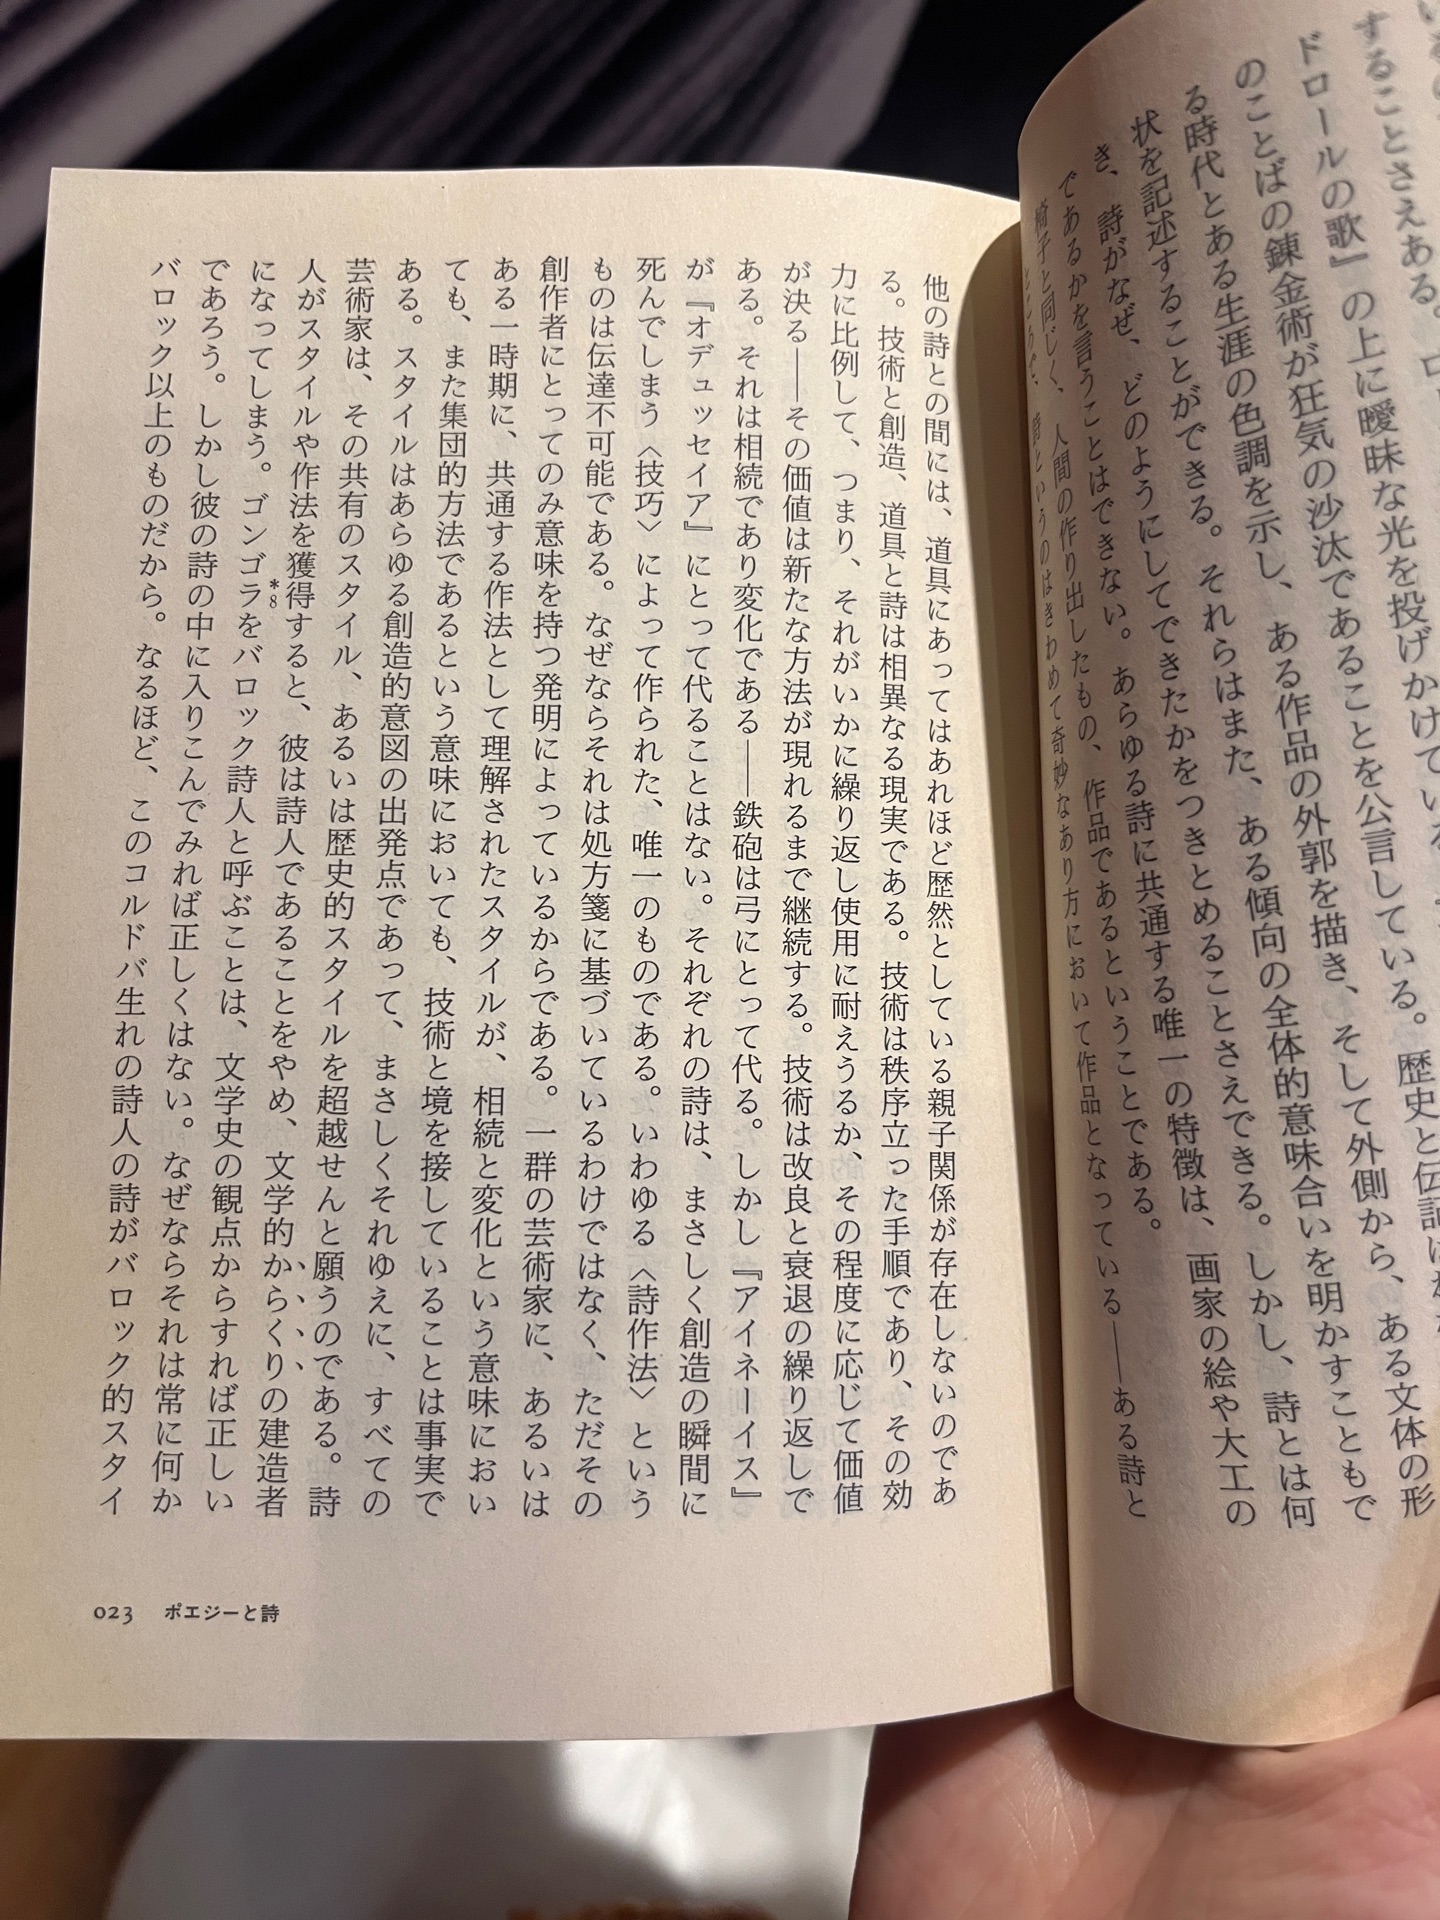 することさえある。
ドロールの歌』の上に曖昧な光を投げかけている
のことばの錬金術が狂気の沙汰であることを公言している。歴史と伝記は
る時代とある生涯の色調を示し、ある作品の外郭を描き、そして外側から、ある文体の形
状を記述することができる。それらはまた、ある傾向の全体的意味合いを明かすこともで
き、詩がなぜ、どのようにしてできたかをつきとめることさえできる。しかし、詩とは何
であるかを言うことはできない。あらゆる詩に共通する唯一の特徴は、画家の絵や大工の
椅子と同じく、人間の作り出したもの、作品であるということである。
ところで、詩というのはきわめて奇妙なあり方において作品となっている——ある詩と
他の詩との間には、道具にあってはあれほど歴然としている親子関係が存在しないのであ
る。技術と創造、道具と詩は相異なる現実である。技術は秩序立った手順であり、その効
力に比例して、つまり、それがいかに繰り返し使用に耐えうるか、その程度に応じて価値
が決る——その価値は新たな方法が現れるまで継続する。技術は改良と衰退の繰り返しで
ある。それは相続であり変化である——鉄砲は弓にとって代る。しかし『アイネーイス』
が『オデュッセイア』にとって代ることはない。それぞれの詩は、まさしく創造の瞬間に
死んでしまう〈技巧〉によって作られた、唯一のものである。いわゆる〈詩作法〉という
ものは伝達不可能である。なぜならそれは処方箋に基づいているわけではなく、ただその
創作者にとってのみ意味を持つ発明によっているからである。一群の芸術家に、あるいは
ある一時期に、共通する作法として理解されたスタイルが、相続と変化という意味におい
ても、また集団的方法であるという意味においても、技術と境を接していることは事実で
ある。スタイルはあらゆる創造的意図の出発点であって、まさしくそれゆえに、すべての
芸術家は、その共有のスタイル、あるいは歴史的スタイルを超越せんと願うのである。詩
人がスタイルや作法を獲得すると、彼は詩人であることをやめ、文学的からくりの建造者
になってしまう。ゴンゴラ*8をバロック詩人と呼ぶことは、文学史の観点からすれば正しい
であろう。しかし彼の詩の中に入りこんでみれば正しくはない。なぜならそれは常に何か
バロック以上のものだから。なるほど、このコルドバ生れの詩人の詩がバロック的スタイ
023 ポエジーと詩